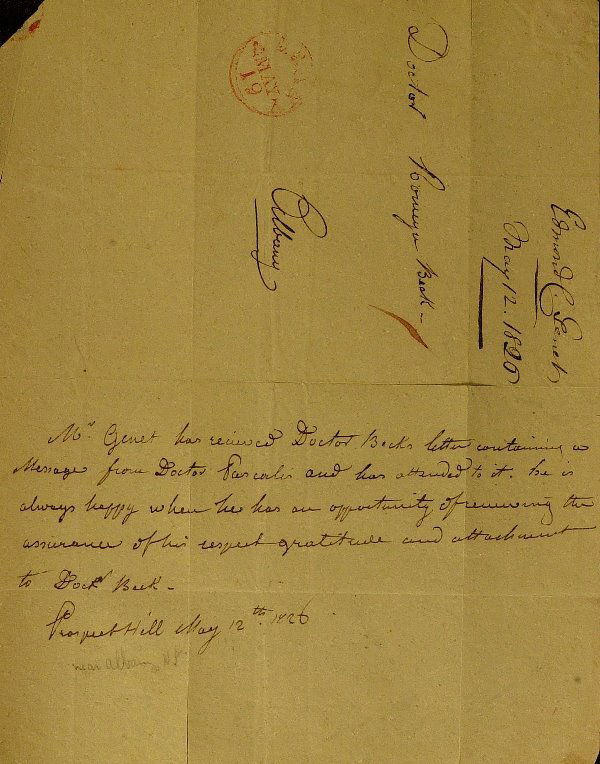 Doctor Romeyn Beck -
Albany
Edmond C. Genet
May 12. 1826
MAY
19
Mr. Genet has recieved Doctor Becks letter containing a
Message from Doctor Pascalis and has attended to it. he is
always happy when he has an opportunity of renewing the
assurance of his respect gratitude and attachment
to Doctr Beck -
Prospect Hill May 12th. 1826
near albany NY